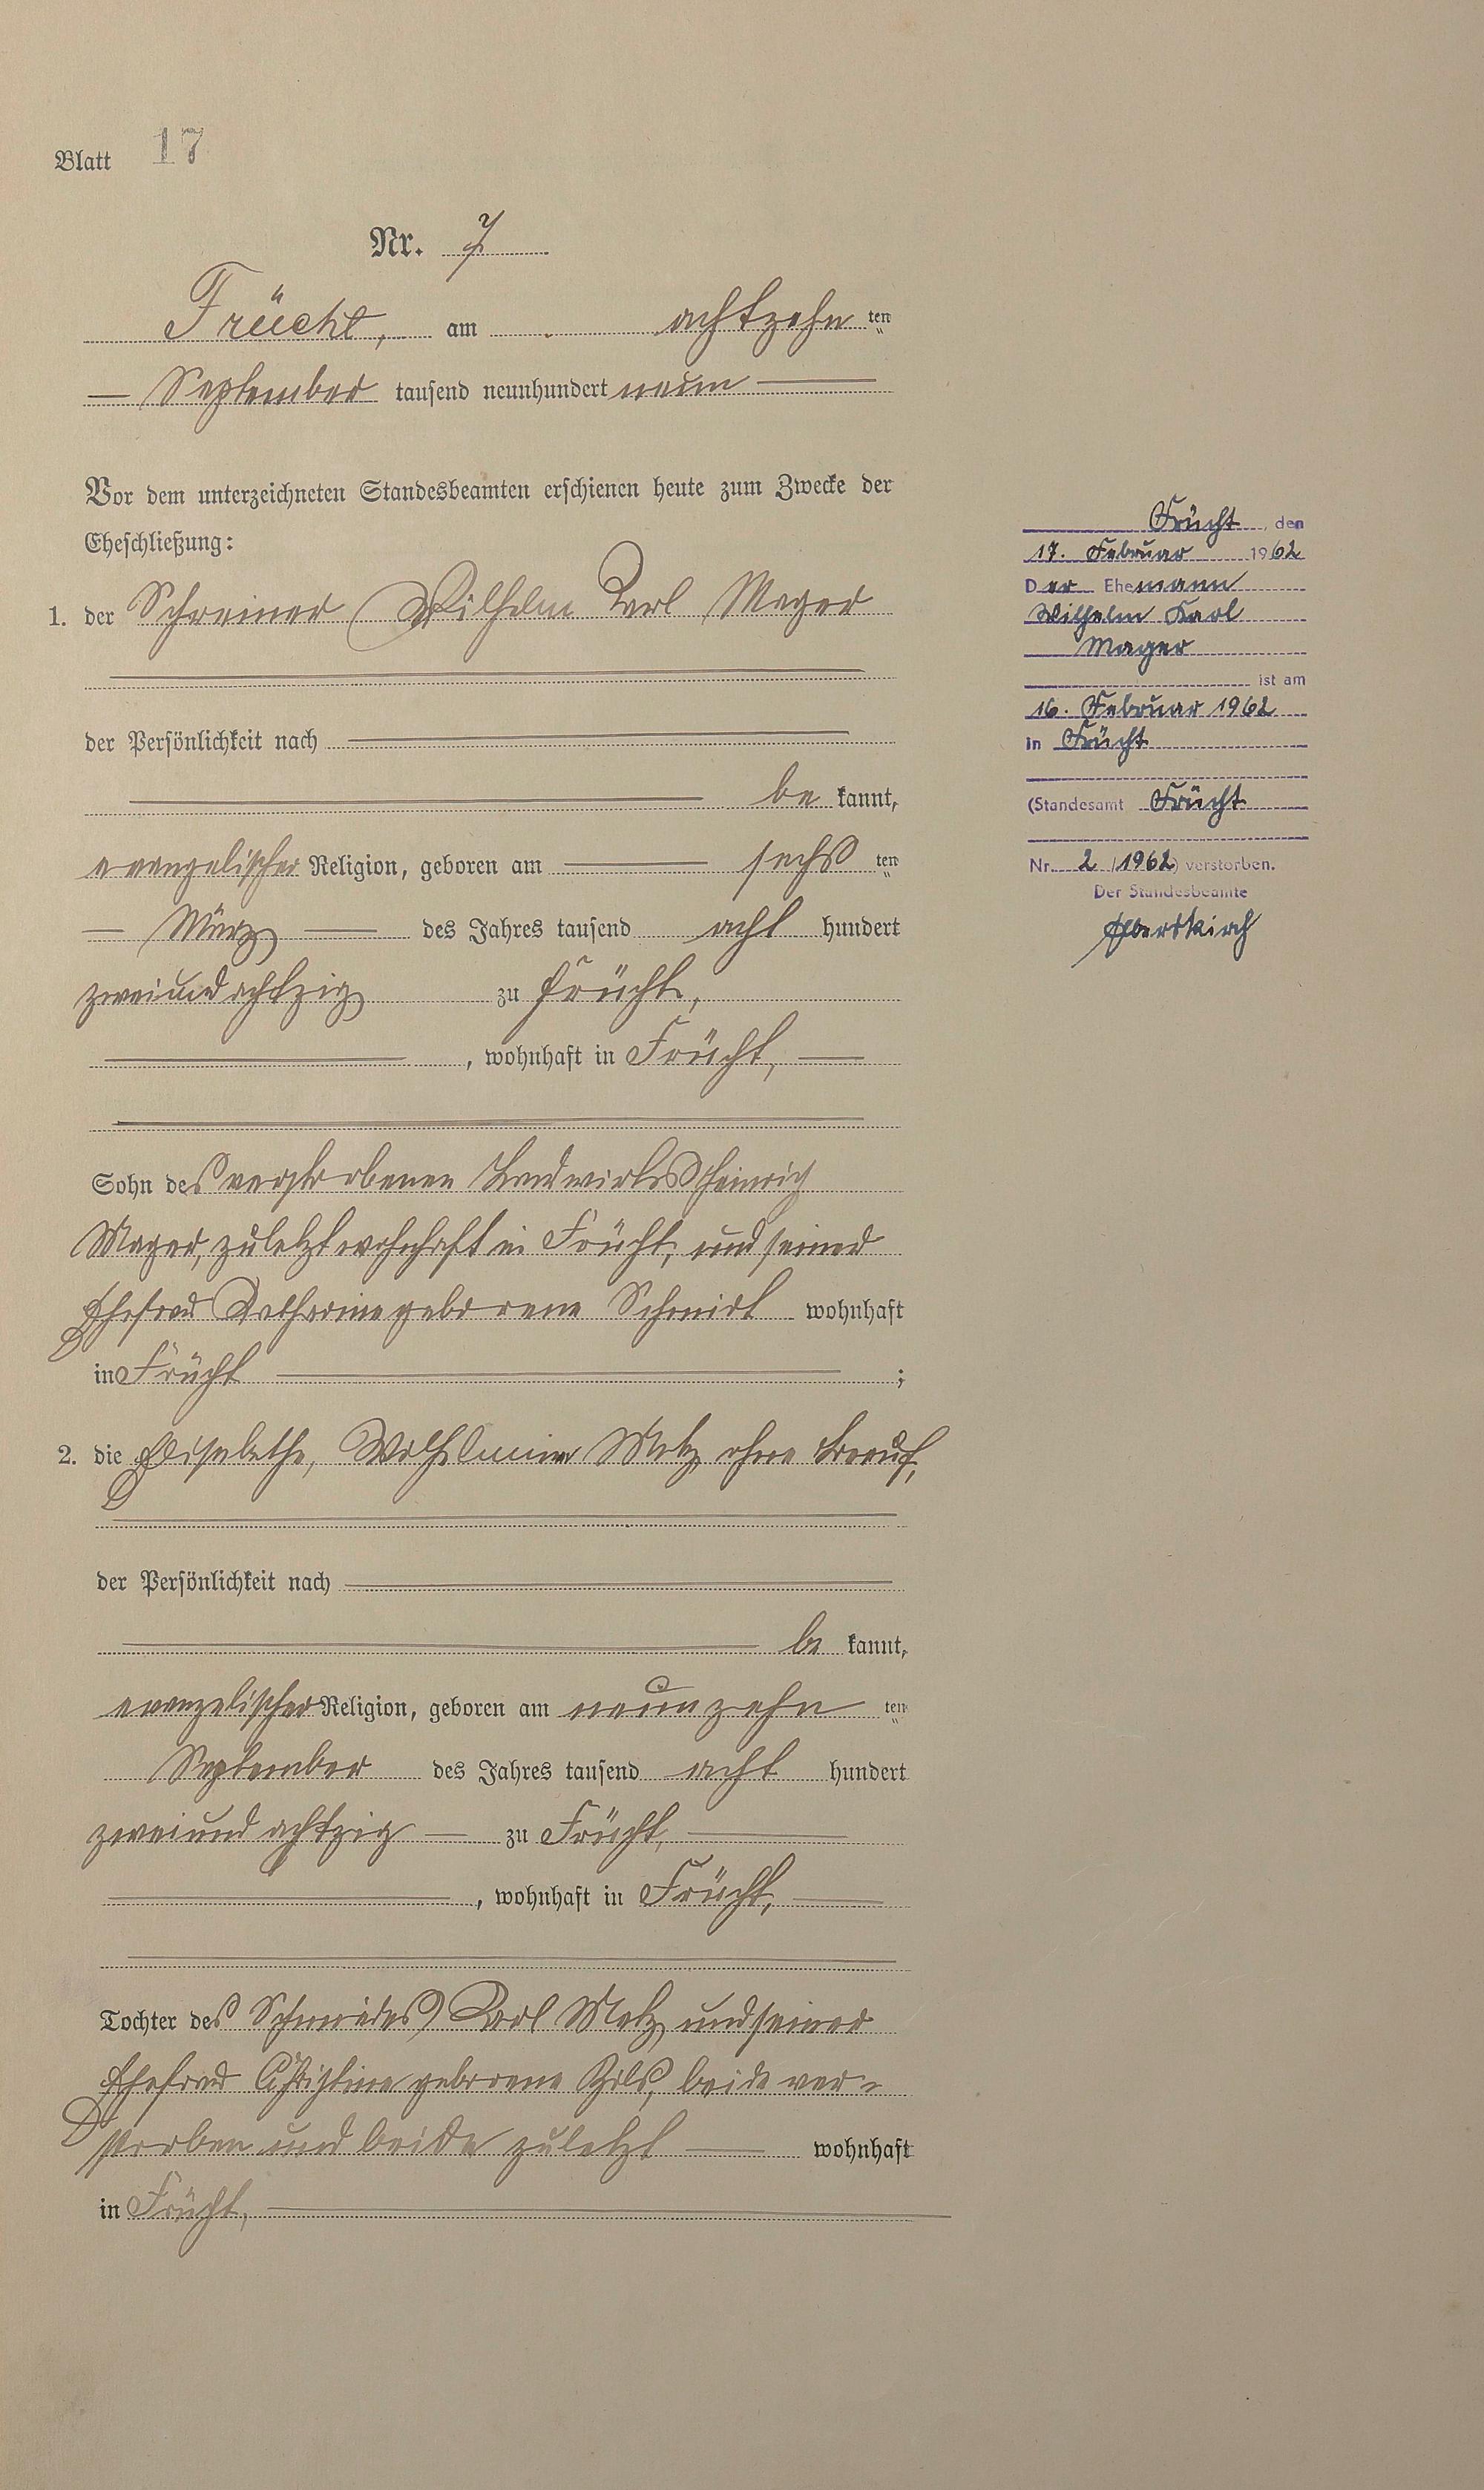 Blatt 17
Nr. 7
Frücht, am achtzehn ten
September tausend neunhundert neun
Vor dem unterzeichneten Standesbeamten erschienen heute zum Zwecke der
Eheschließung:
1. der Schreiner Wilhelm Karl Mager
der Persönlichkeit nach
be kannt,
evangelischer Religion, geboren am sechs ten
März des Jahres tausend acht hundert
zweiundachtzig zu Frücht,
, wohnhaft in Frücht,
Sohn des verstorbenen Landwirtes Heinrich
Mager, zuletzt wohnhaft in Frücht, und seiner
Ehefrau Katharine geborene Schmidt wohnhaft
in Frücht ;
2. die Elisabethe, Wilhelmine Metz ohne Beruf,
der Persönlichkeit nach
be kannt,
evangelischer Religion, geboren am neunzehn ten
September des Jahres tausend acht hundert
zweiundachtzig zu Frücht,
, wohnhaft in Frücht,
Tochter des Schmiedes Karl Metz und seiner
Ehefrau Christine geborene beide ver-
storben und beide zuletzt wohnhaft
in Frücht,
Frücht, den
17. Februar 1962
Der Ehemann
Wilhelm Karl
Mager
ist am
16. Februar 1962
in Frücht
(Standesamt Frücht
Nr. 2/1962) verstorben.
Der Standesbeamte